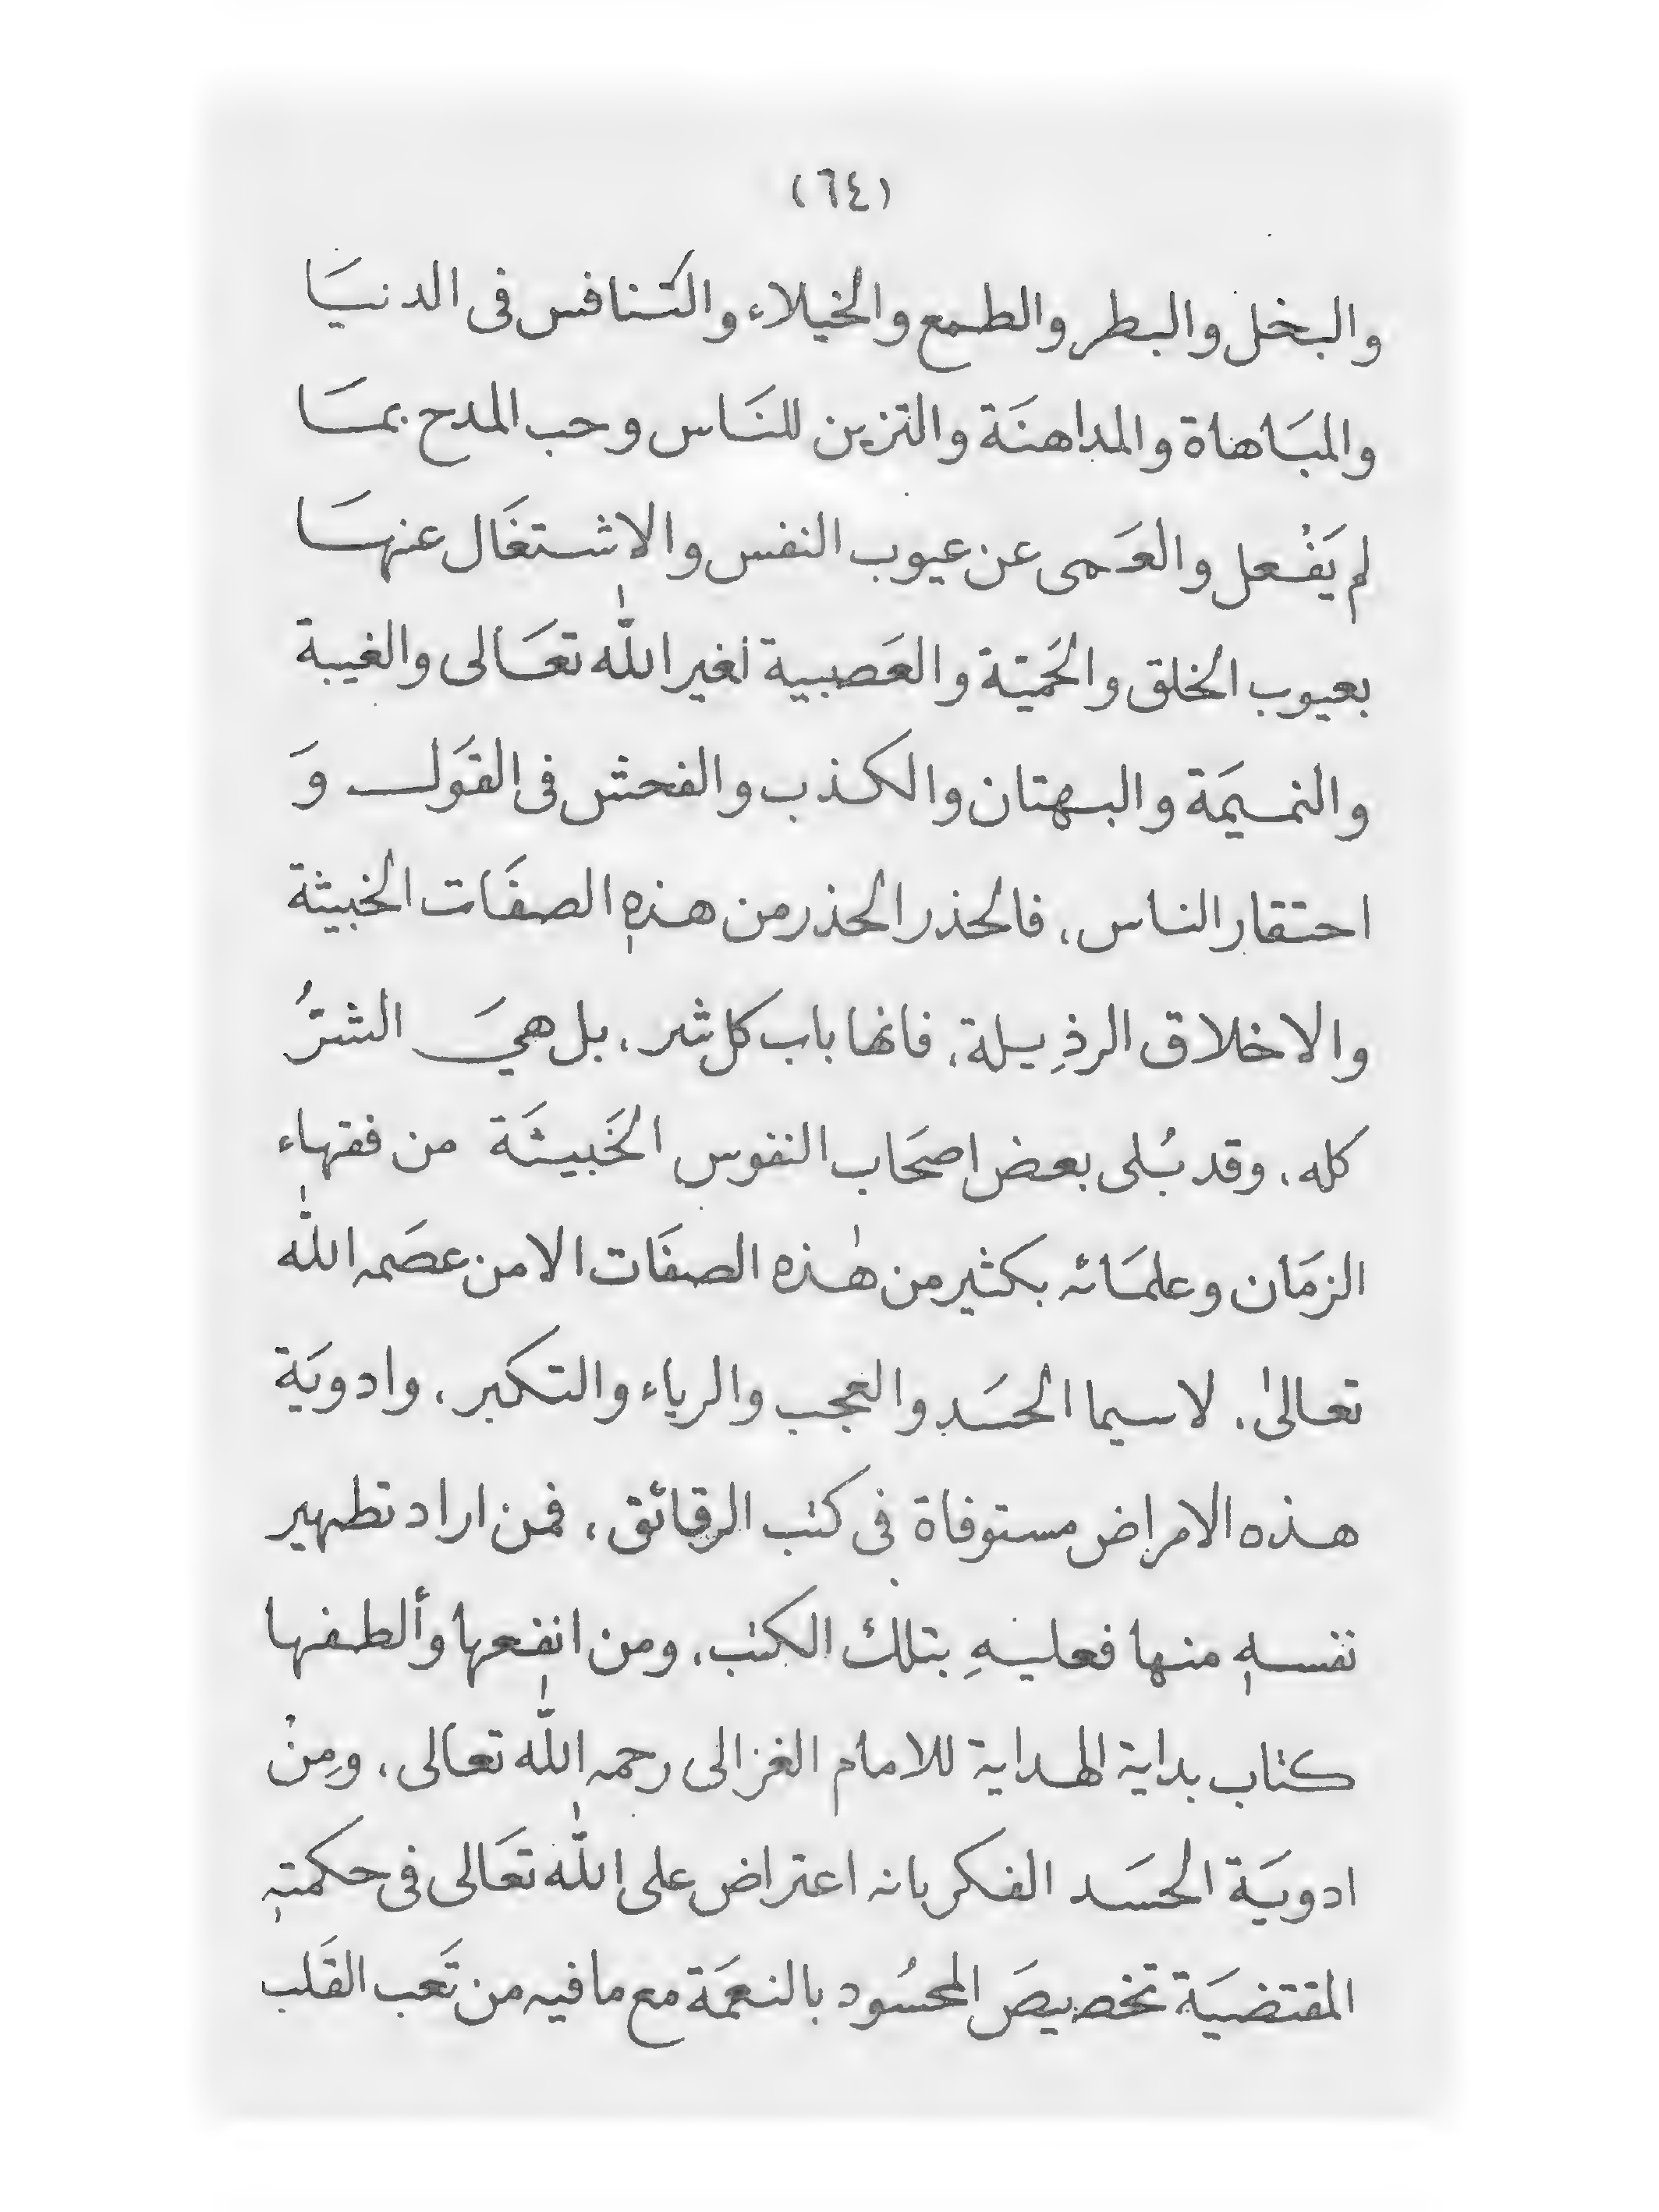 (٦٤)
والبخل والبطر والطمع والخيلاء والتنافس فى الدنيَا
والمبَاهاة والمداهنَة والتزين للنَاس وحب المدح بمَا
لم يَفْعل والعَمى عن عيوب النفس والاشتغَال عنهَا
بعيوب الخلق والحَميّة والعَصبية لغير الله تعَالى والغيبة
والنميمَة والبهتان والكذب والفحش فى القَول وَ
احتقار الناس، فالحذر الحذر من هذهٖ الصفَات الخبيثة
والاخلاق الرذِيلة، فانها باب كل شر، بل هيَ الشرُّ
كله، وقد بُلى بعض اصحَاب النفوس الخَبيثَة من فقهاء
الزمَان وعلمَائه بكثير من هٰذه الصفَات الا من عصَمه الله
تعالىٰ، لاسيما الحسَد والعجب والرياء والتكبر، وادويَة
هذه الامراض مستوفاة فى كتب الرقائق، فمن اراد تطهير
نفسهٖ منها فعليهِ بتلك الكتب، ومن انفعها وألطفها
كتاب بداية الهداية للامام الغزالى رحمه الله تعالى، ومِنْ
ادويَة الحسَد الفكر بانه اعتراض على الله تعَالى فى حكمتهٖ
المقتضيَة تخصيصَ المحسُود بالنعمَة مع ما فيه من تَعب القَلب